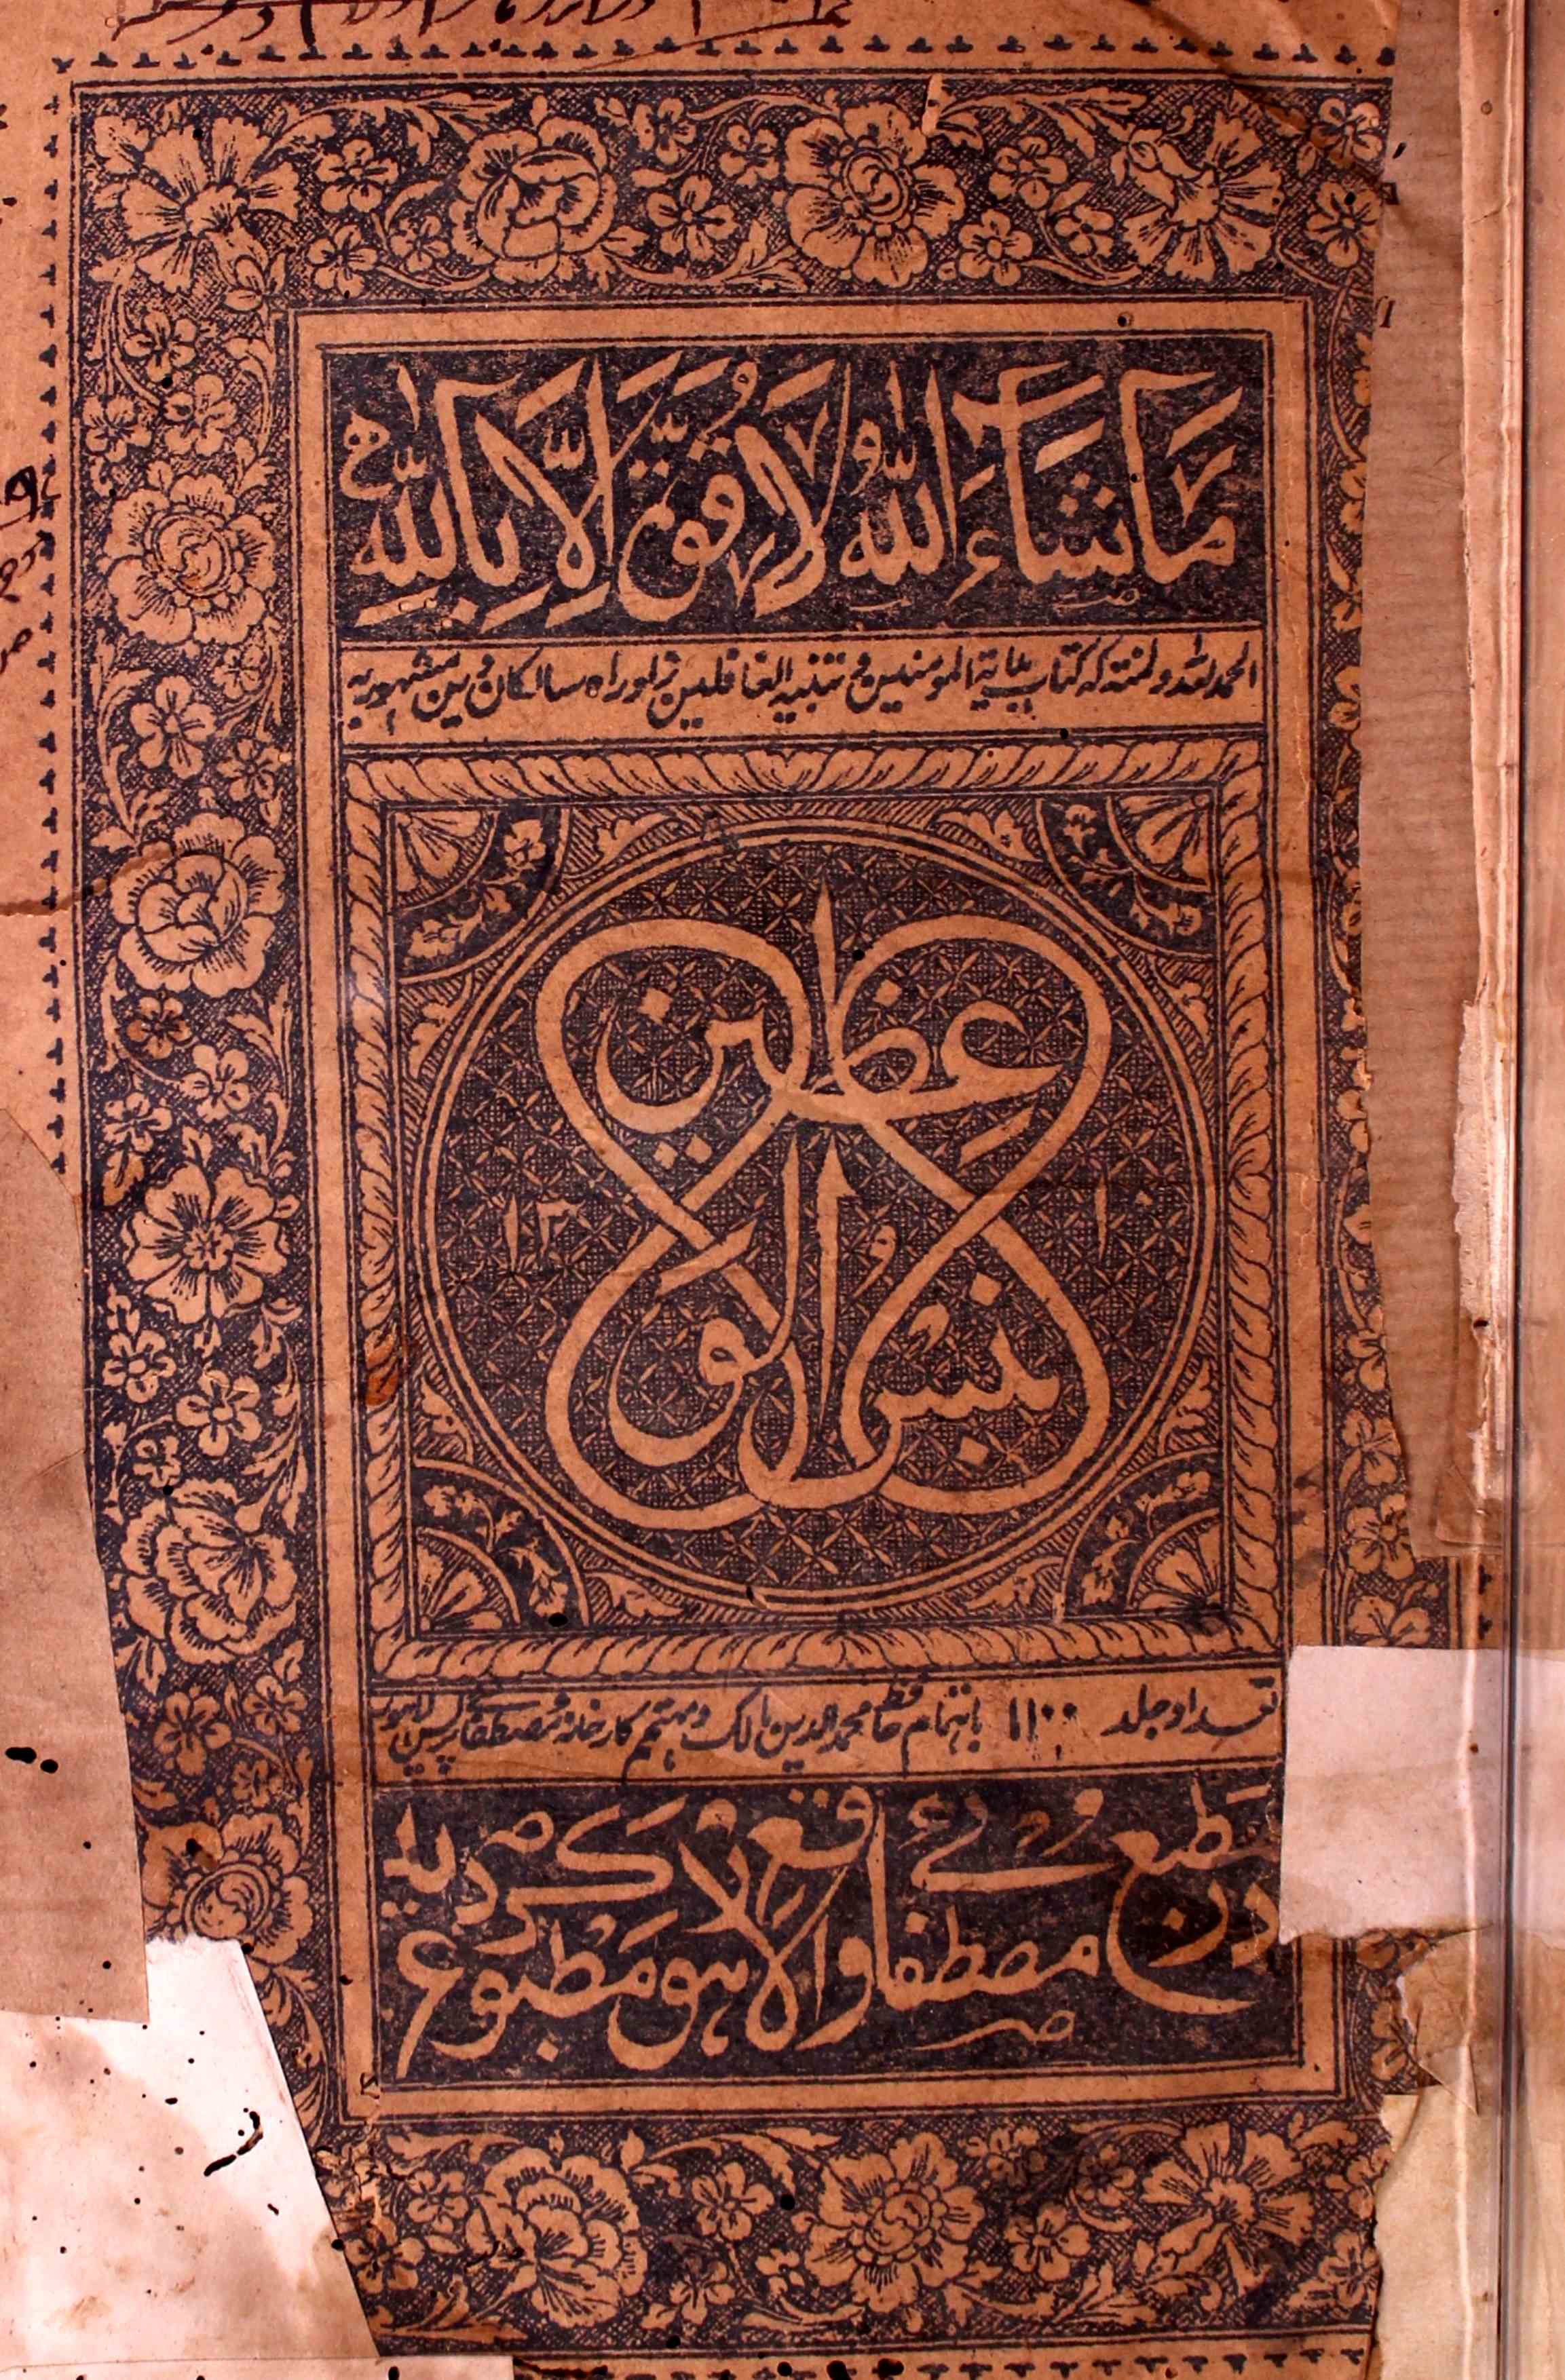 مَا شَاءَ اللّٰهُ لَا قُوَّةَ اِلَّا بِاللّٰهِ
الحمد لله والمنته که کتاب المومنین و تنبیه الغافلین زاد راه سالکان دین مشهور به
انیس الواعظین
۱۳ ۱۰
تعداد جلد ۱۱۰۰ باهتمام حافظ محمد الدین مالک و مهتمم کارخانه مصطفائی پریس لاهور
در مطبع مصطفائی واقع لاهور مطبوع گردید